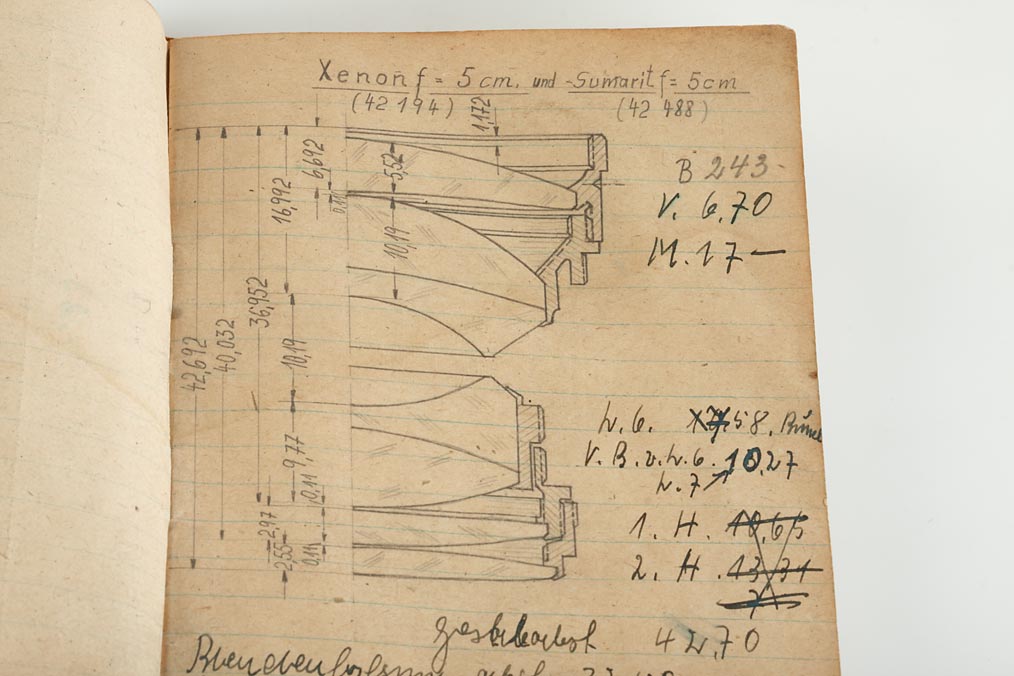 Xenon f = 5 cm. und Sumarit f = 5cm
(42 194) (42 488)
1,172
6,692
5,52
0,11
16,992
10,19
36,952
40,032
42,692
10,19
9,77
0,11
2,97
2,55
0,11
B 243-
V. 6,70
M. 17 —
h. 6. 58.
V. B. v. h. 6. 10,27
h. 7
1. H. 10,65
2. H. 13,31
42,70